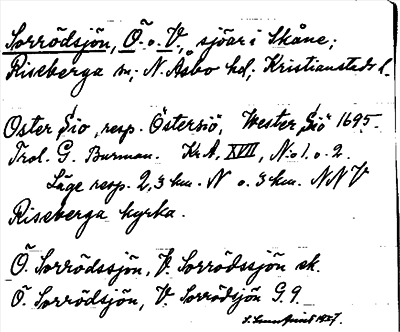 Sorrödsjön, Ö. o. V., sjöar i Skåne;
Riseberga sn; N. Åsbo hd; Kristianstads l.
Öster Sio, resp. Östersiö, Wester "Siö" 1695.
Trol. G. Burman. Kr.A, XVII, No 1. o. 2.
Läge resp. 2,3 km. N o. 3 km. NNV
Riseberga kyrka.
Ö. Sorrödssjön, V. Sorrödssjön sk.
Ö. Sorrödsjön, V. Sorrödsjön G. 9.
1927.